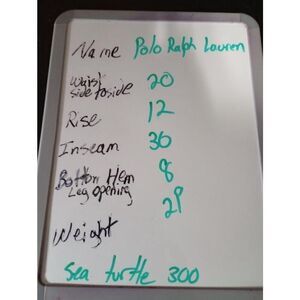 Name Polo Ralph Lauren
Waist 20
side to side
Rise 12
Inseam 30
Bottom Hem 8
Leg opening
29
Weight
Sea turtle 300